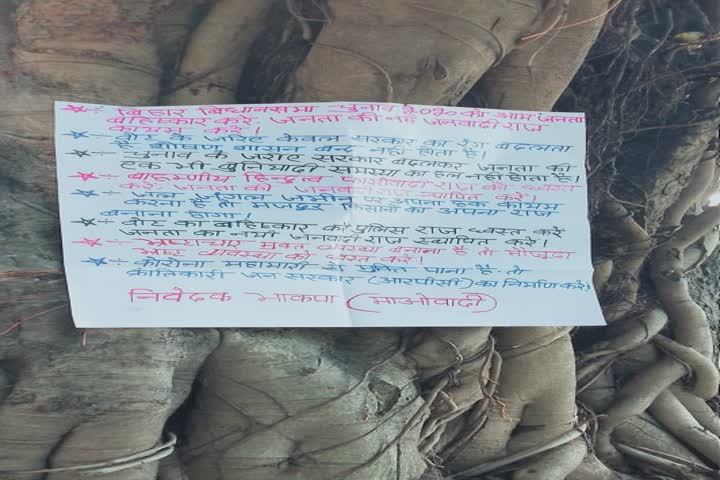 ☆÷ बिहार बिधानसभा चुनाव २०२० को आम जनता
बहिष्कार करें, जनता की नई जनवादी राज
कायम करें।
☆÷ वोट के जरिए केवल सरकार का रंग बदलता
है शोषण शासन बन्द नहीं होता है।
☆÷ चुनाव के जरिए सरकार बदलकर जनता की
एक भी बुनियादी समस्या का हल नहीं होता है।
☆÷ ब्राह्मणीय हिन्दुत्व फासीवादी राज को ध्वस्त
करें, जनता की जनवादी स्थापित करें।
☆÷ जल जंगल जमीन पर अपना हक कायम
करना है तो मजदूर किसानों का अपना राज
बनाना होगा।
☆÷ वोट का बहिष्कार करें पुलिस राज ध्वस्त करें
जनता का नयी जनवादी राज स्थापित करें।
☆÷ भ्रष्टाचार मुक्त व्यवस्था बनाना है तो मौजूदा
भ्रष्ट व्यवस्था को ध्वस्त करें।
☆÷ कोरोना महामारी से मुक्ति पाना है तो
क्रांतिकारी जन सरकार (आरपीसी) का निर्माण करें।
निवेदक भाकपा (माओवादी)